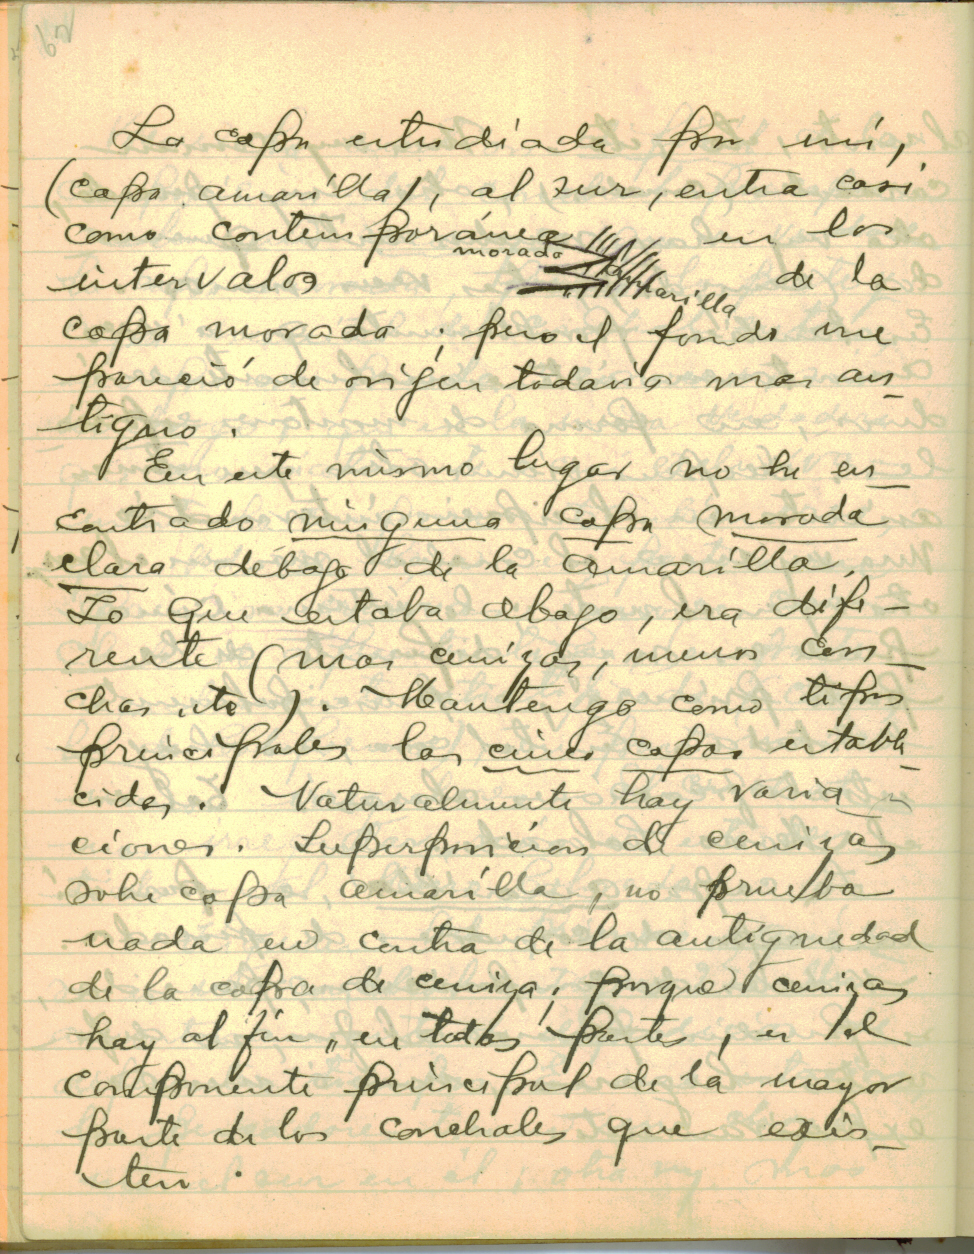 La capa estudiada por mí,
(capa amarilla), al sur, entra casi
como contemporánea en los
morado
intervalos de la
amarilla
capa morada; pero el fondo me
pareció de origen todavia mas an-
tiguo.
En este mismo lugar no he en-
contrado ninguna capa morada
clara debajo de la amarilla.
Lo que estaba abajo, era dife-
rente (mas cenizas, menos con-
chas, etc). Mantengo como tipos
principales las cinco capas estable-
cidas. Naturalmente hay varia-
ciones. Superposición de cenizas
sobre capa amarilla, no prueba
nada en contra de la antiguedad
de la capa de ceniza; porque cenizas
hay al fin, en todas partes, es el
componente principal de la mayor
parte de los conchales que exis-
ten.